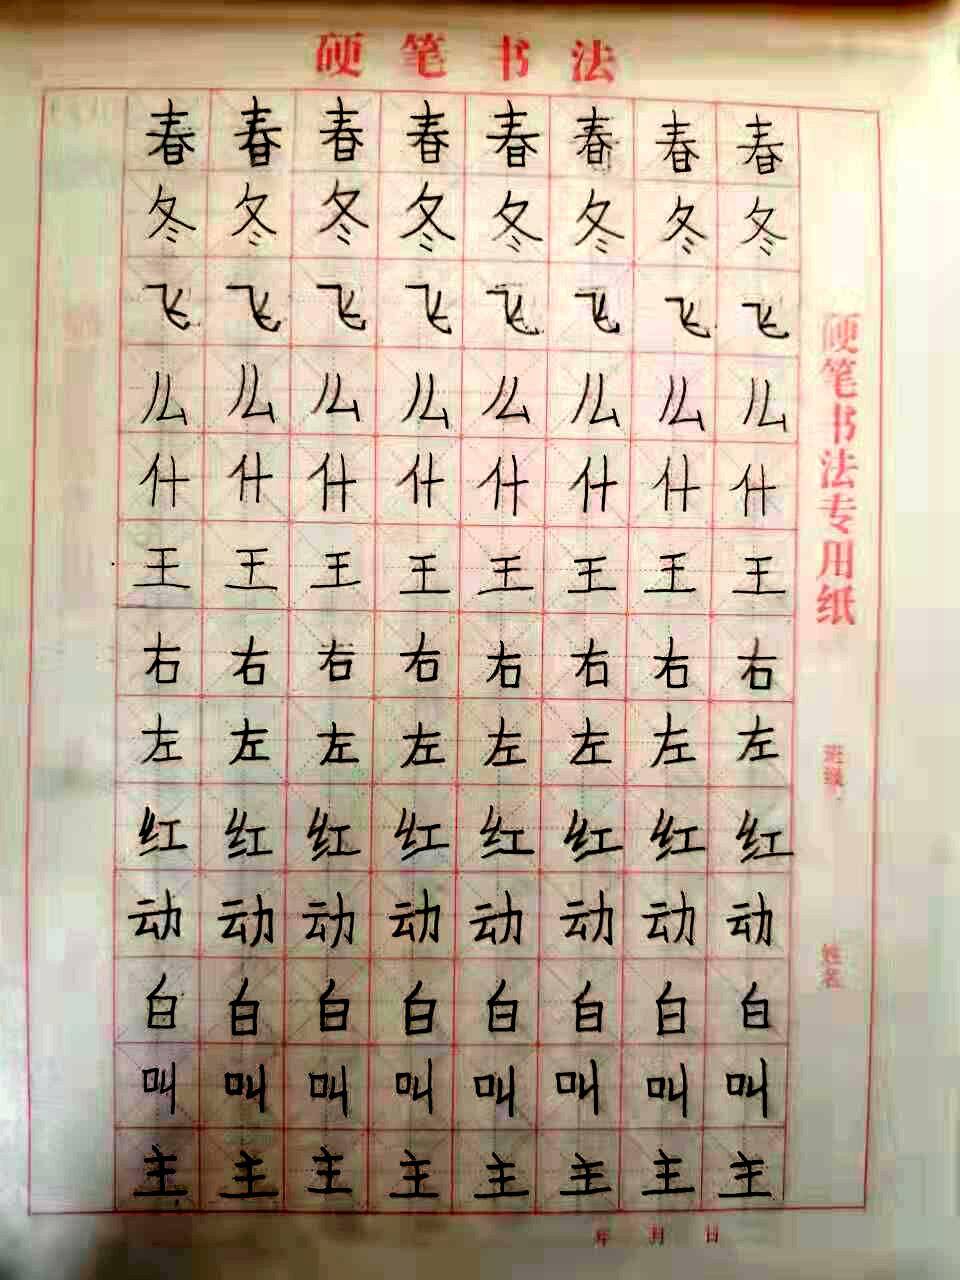 硬笔书法
春春春春春春春春
冬冬冬冬冬冬冬冬
飞飞飞飞飞飞飞飞
么么么么么么么么
什什什什什什什什
王王王王王王王王
右右右右右右右右
左左左左左左左左
红红红红红红红红
动动动动动动动动
白白白白白白白白
叫叫叫叫叫叫叫叫
主主主主主主主主
硬笔书法专用纸
班级
姓名
年 月 日